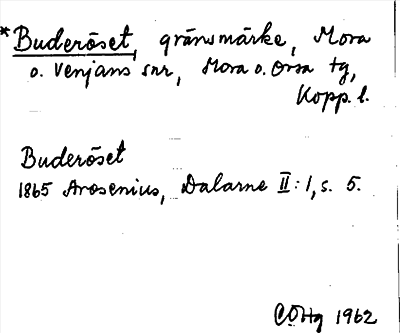 *Buderöset, gränsmärke, Mora
o. Venjans snr, Mora o. Orsa tg,
Kopp. l.
Buderöset
1865 Arosenius, Dalarne II:1, s. 5.
1962